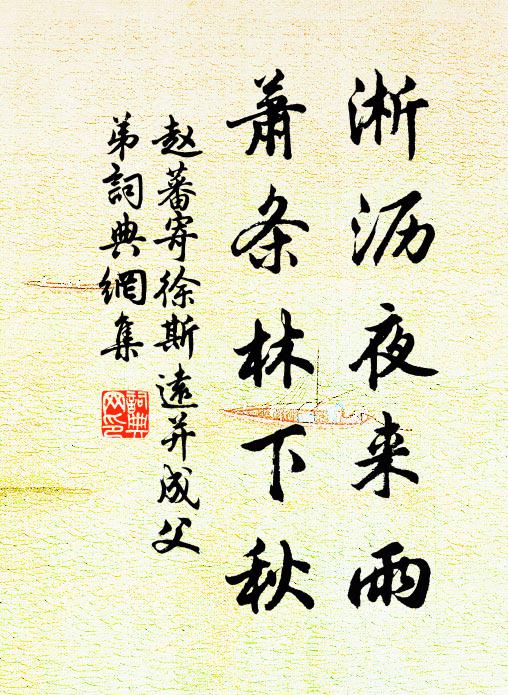 淅沥夜来雨
萧条林下秋
赵蕃寄徐斯远并成父
弟詞典網集
詞典网印